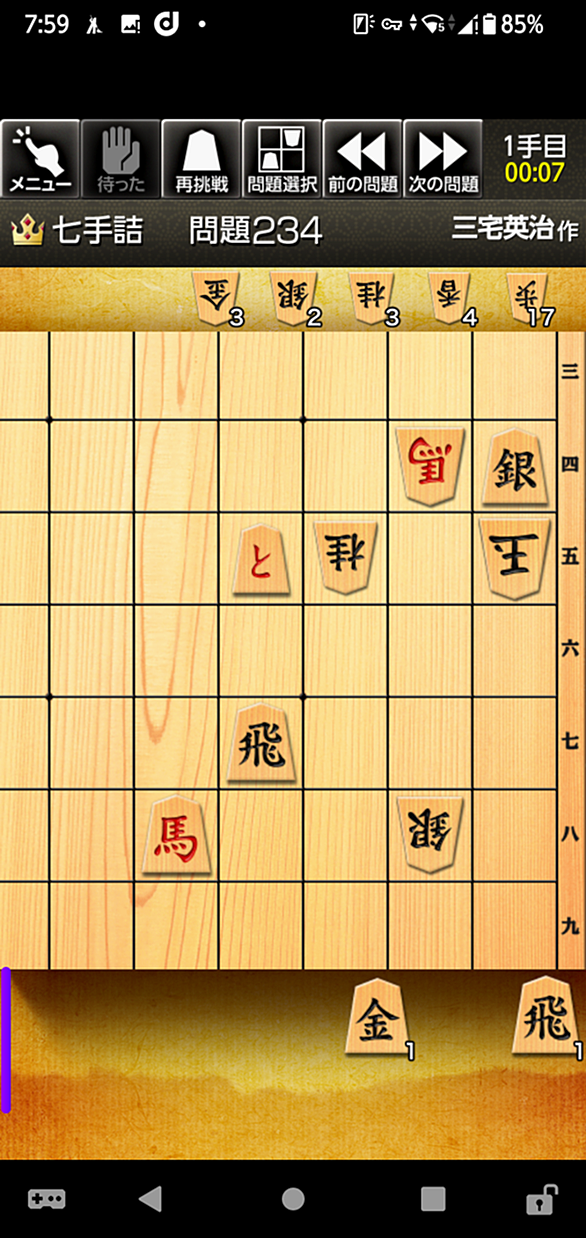 7:59 5 85%
メニュー 待った 再挑戦 問題選択 前の問題 次の問題 1手目 00:07
七手詰 問題234 三宅英治作
金3 銀2 桂3 香4 歩17
三
馬 銀 四
と 桂 玉 五
六
飛 七
馬 銀 八
九
金1 飛1